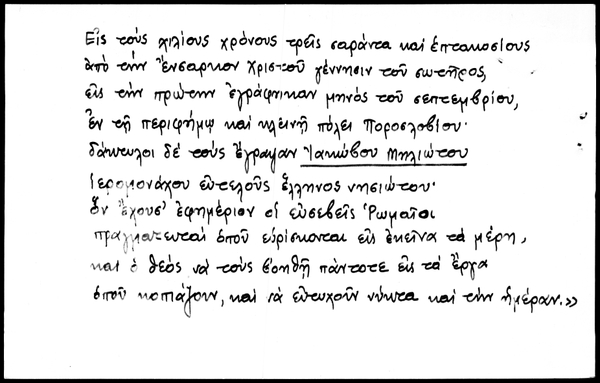 Εἰς τοὺς χιλίους χρόνους τρεῖς σαράντα καὶ ἑπτακοσίους
ἀπὸ τὴν ἔνσαρκον χριστοῦ γέννησιν τοῦ σωτῆρος,
εἰς τὴν πρώτην ἐγράφηκαν μηνὸς τοῦ σεπτεμβρίου,
ἐν τῇ περιφήμῳ καὶ κλεινῇ πόλει Ποροσλοβίου·
δάκτυλοι δὲ τοὺς ἔγραψαν Ἰακώβου Μηλιώτου
ἱερομονάχου εὐτελοῦς ἕλληνος νησιώτου·
ὃν ἔχουσ' ἐφημέριον οἱ εὐσεβεῖς Ῥωμαῖοι
πραγματευταὶ ὁποῦ εὑρίσκονται εἰς ἐκεῖνα τὰ μέρη,
καὶ ὁ θεὸς νὰ τοὺς βοηθῇ πάντοτε εἰς τὰ ἔργα
ὁποῦ κοπιάζουν, καὶ νὰ εὐτυχοῦν νύκτα καὶ τὴν ἡμέραν.»